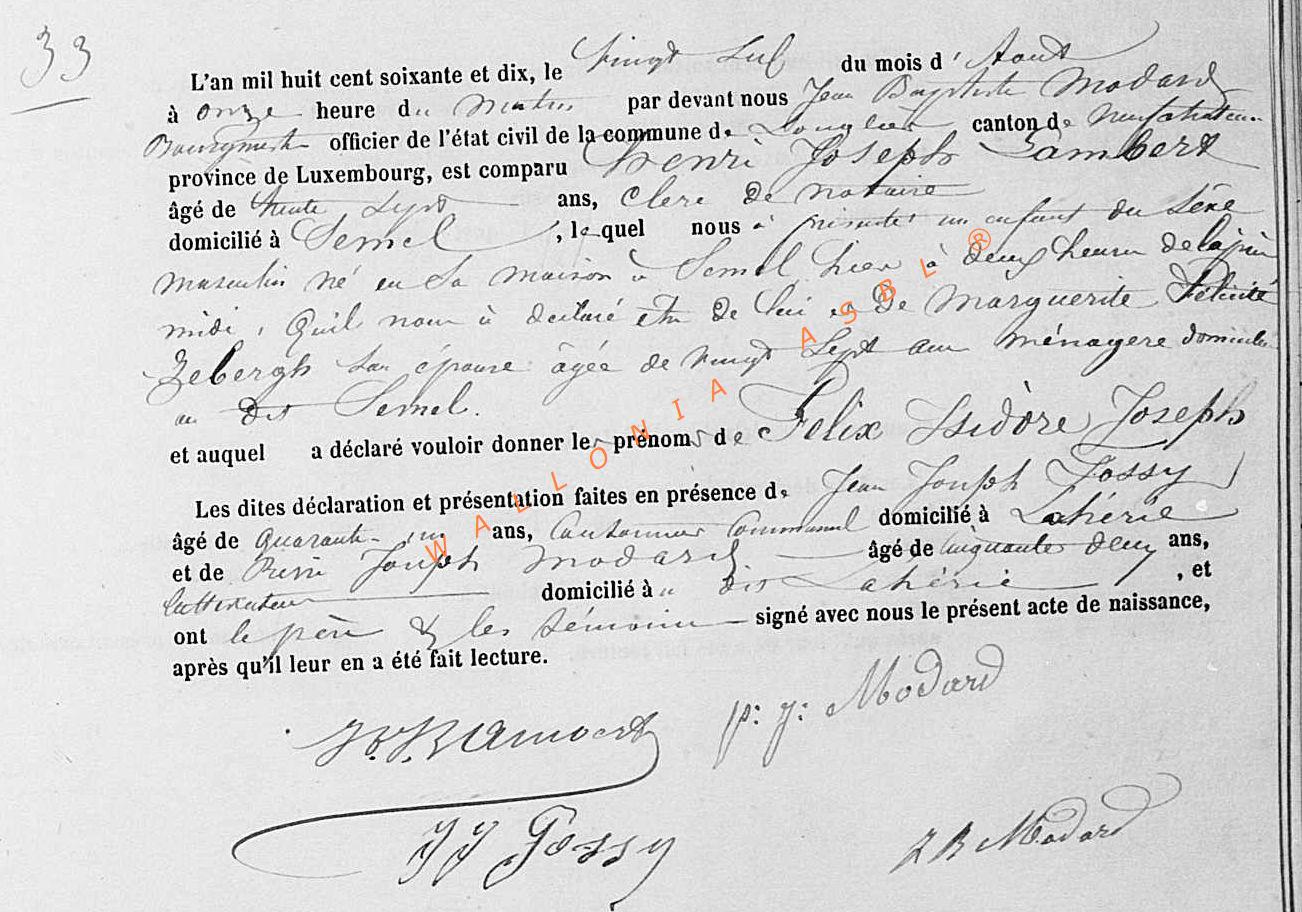 33
L'an mil huit cent soixante et dix, le Vingt du mois d' Aout
à onze heure du Matin par devant nous Jean Baptiste Modard
Bourgmestre officier de l'état civil de la commune de Longlier canton de Neufchateau
province de Luxembourg, est comparu Henri Joseph Lambert
âgé de trente sept ans, Clerc de notaire
domicilié à Semel, lequel nous à présenté un enfant du Sexe
masculin né en Sa maison à Semel hier à deux heures de laprès
midi, Quil nous à déclaré être de lui et de Marguerite Félicité
Zebergh son épouse âgée de vingt Sept ans ménagère domiciliée
au dit Semel.
et auquel a déclaré vouloir donner les prénoms de Félix Isidore Joseph
Les dites déclaration et présentation faites en présence de Jean Joseph Gossy
âgé de Quarante un ans, Cantonnier Communal domicilié à Lahérie
et de Pierre Joseph Modard âgé de cinquante deux ans,
cultivateur domicilié à u dit Lahérie, et
ont le père & les témoins signé avec nous le présent acte de naissance,
après qu'il leur en a été fait lecture.
p: j: Modard
JJ Gossy
J B Modard
WALLONIA ASBL ®